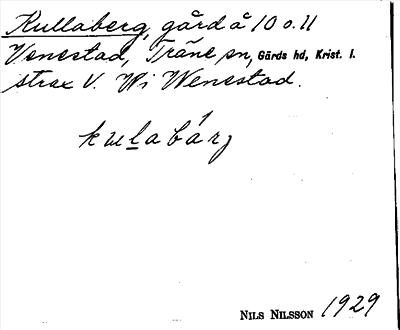 Kullaberg, gård å 10 o. 11
Venestad, Träne sn, Gärds hd, Krist. l.
strax V. Vi Wenestad.
kulabárg
NILS NILSSON 1929